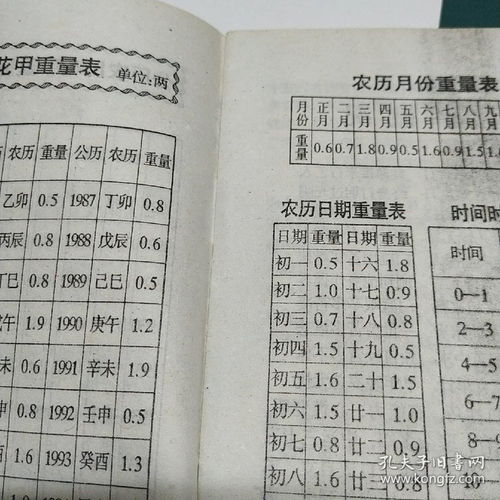 花甲重量表 单位:两
农历 重量 公历 农历 重量
乙卯 0.5 1987 丁卯 0.8
丙辰 0.8 1988 戊辰 0.6
丁巳 0.8 1989 己巳 0.5
午 1.9 1990 庚午 1.2
未 0.6 1991 辛未 1.9
申 0.8 1992 壬申 0.5
1.6 1993 癸酉 1.3
农历月份重量表
月份 正月 二月 三月 四月 五月 六月 七月 八月 九月
重量 0.6 0.7 1.8 0.9 0.5 1.6 0.9 1.5
农历日期重量表
日期 重量 日期 重量
初一 0.5 十六 1.8
初二 1.0 十七 0.9
初三 0.7 十八 0.8
初四 1.5 十九 0.5
初五 1.6 二十 1.5
初六 1.5 廿一 1.0
初七 0.8 廿二 0.9
初八 1.6 廿三 0.8
时间时
时间
0—1
2—3
4—5
6—7
8—9
10
孔夫子旧书网
www.kongfz.com